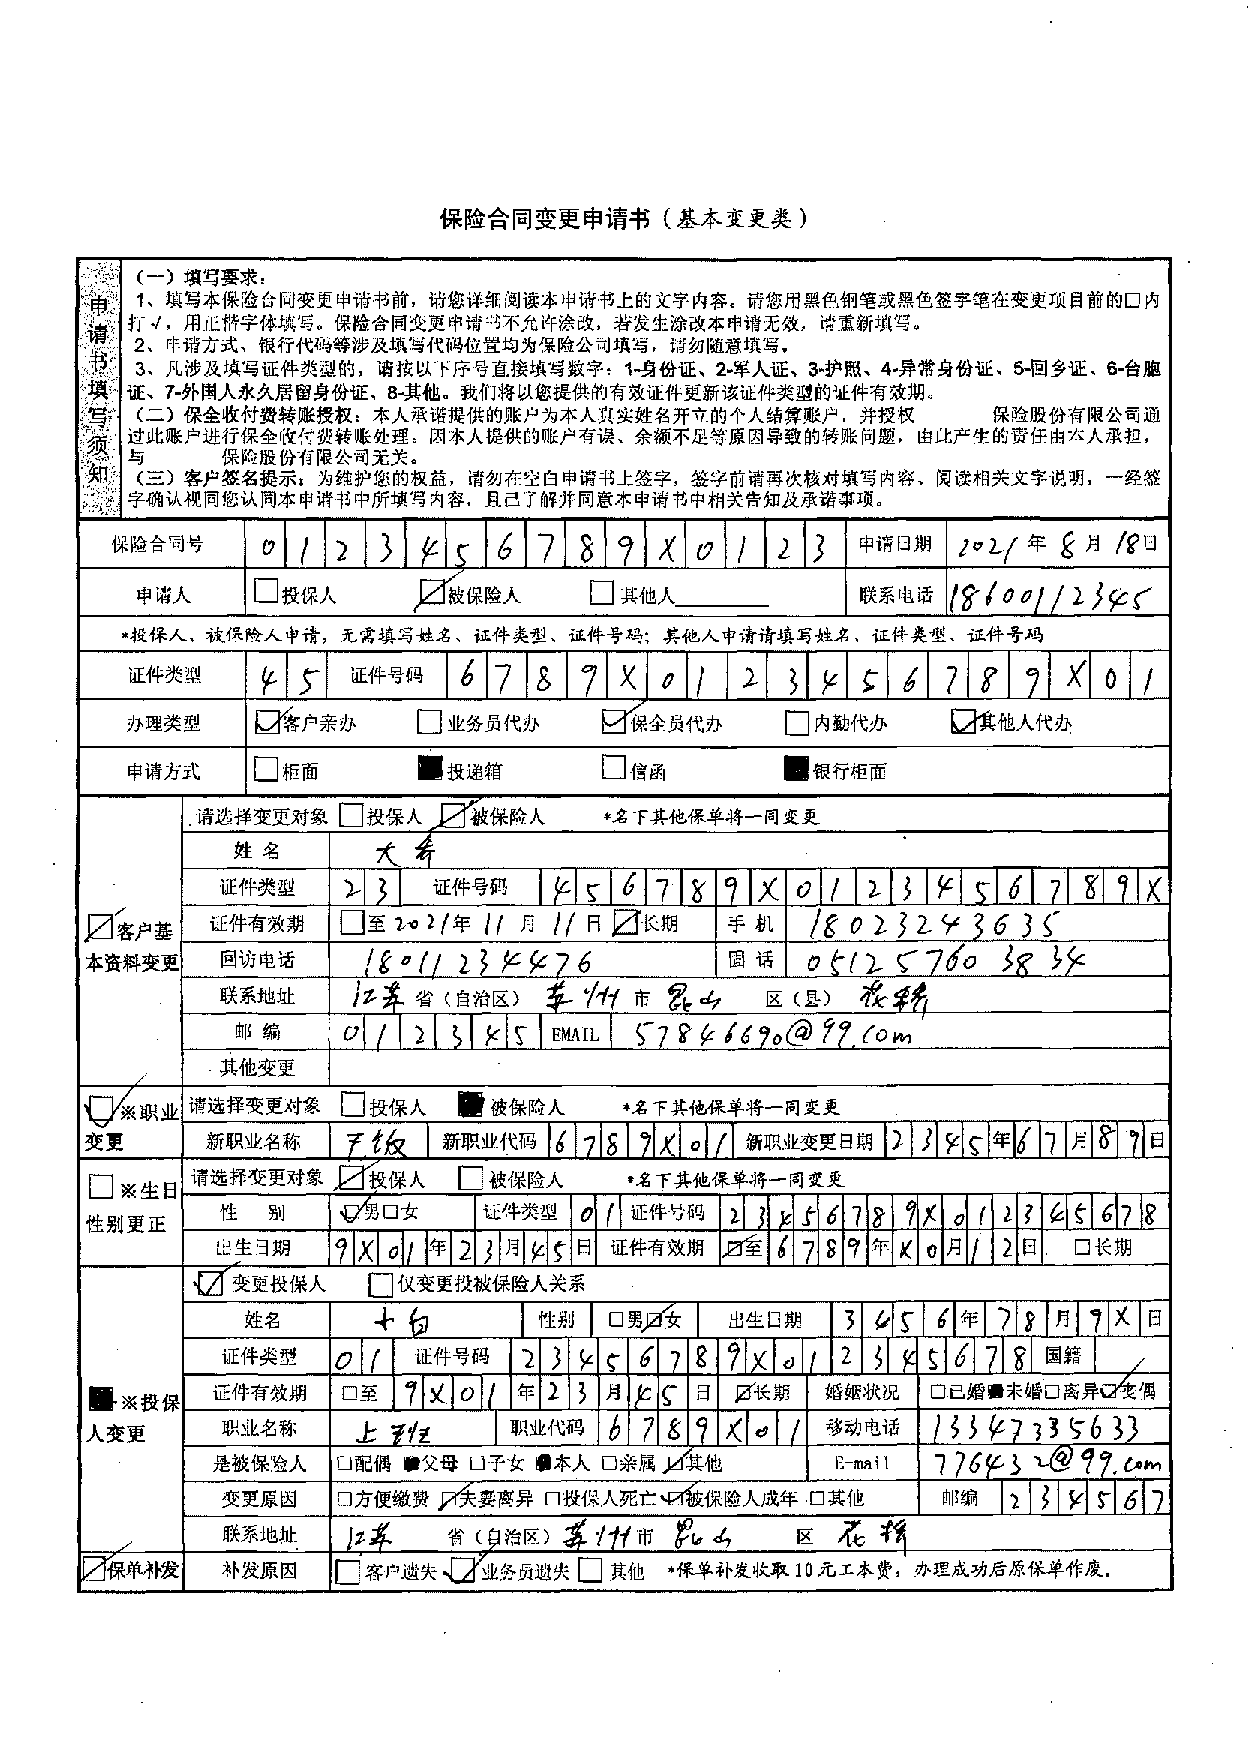 保险合同变更申请书（基本变更类）
申请书填写须知
（一）填写要求：
1、填写本保险合同变更申请书前，请您详细阅读本申请书上的文字内容。请您用黑色钢笔或黑色签字笔在变更项目前的□内
打√，用正楷字体填写。保险合同变更申请书不允许涂改，若发生涂改本申请无效，请重新填写。
2、申请方式、银行代码等涉及填写代码位置均为保险公司填写，请勿随意填写。
3、凡涉及填写证件类型的，请按以下序号直接填写数字：1-身份证、2-军人证、3-护照、4-异常身份证、5-回乡证、6-台胞
证、7-外国人永久居留身份证、8-其他。我们将以您提供的有效证件更新该证件类型的证件有效期。
（二）保全收付费转账授权：本人承诺提供的账户为本人真实姓名开立的个人结算账户，并授权 保险股份有限公司通
过此账户进行保全收付费转账处理；因本人提供的账户有误、余额不足等原因导致的转账问题，由此产生的责任由本人承担，
与 保险股份有限公司无关。
（三）客户签名提示：为维护您的权益，请勿在空白申请书上签字，签字前请再次核对填写内容、阅读相关文字说明，一经签
字确认视同您认同本申请书中所填写内容，且已了解并同意本申请书中相关告知及承诺事项。
保险合同号 0123456789X0123 申请日期 2021年8月18日
申请人 □投保人 ☑被保险人 □其他人 联系电话 18600112345
*投保人、被保险人申请，无需填写姓名、证件类型、证件号码；其他人申请请填写姓名、证件类型、证件号码
证件类型 45 证件号码 6789X0123456789X01
办理类型 ☑客户亲办 □业务员代办 ☑保全员代办 □内勤代办 ☑其他人代办
申请方式 □柜面 ■投递箱 □信函 ■银行柜面
☑客户基本资料变更
请选择变更对象 □投保人 ☑被保险人 *名下其他保单将一同变更
姓名 大希
证件类型 23 证件号码 456789X0123456789X
证件有效期 □至2021年11月11日 ☑长期 手机 18023243635
回访电话 18011234476 固话 051257603834
联系地址 江苏省（自治区）苏州市昆山 区（县）花桥
邮编 012345 EMAIL 57846690@99.com
其他变更
☑※职业变更
请选择变更对象 □投保人 ■被保险人 *名下其他保单将一同变更
新职业名称 新职业代码 6789X01 新职业变更日期 2345年67月89日
□※生日性别更正
请选择变更对象 ☑投保人 □被保险人 *名下其他保单将一同变更
性别 ☑男□女 证件类型 01 证件号码 23456789X012345678
出生日期 9X01年23月45日 证件有效期 ☑至6789年X0月12日 □长期
■※投保人变更
☑变更投保人 □仅变更投被保险人关系
姓名 十白 性别 □男☑女 出生日期 3456年78月9X日
证件类型 01 证件号码 23456789X012345678 国籍
证件有效期 □至9X01年23月45日 ☑长期 婚姻状况 □已婚■未婚□离异☑丧偶
职业名称 上班 职业代码 6789X01 移动电话 13347335633
是被保险人 □配偶 ■父母 □子女 ■本人 □亲属 ☑其他 E-mail 776432@99.com
变更原因 □方便缴费 ☑夫妻离异 □投保人死亡 ☑被保险人成年 □其他 邮编 234567
联系地址 江苏 省（自治区）苏州市 昆山 区 花桥
☑保单补发 补发原因 □客户遗失 ☑业务员遗失 □其他 *保单补发收取10元工本费；办理成功后原保单作废。